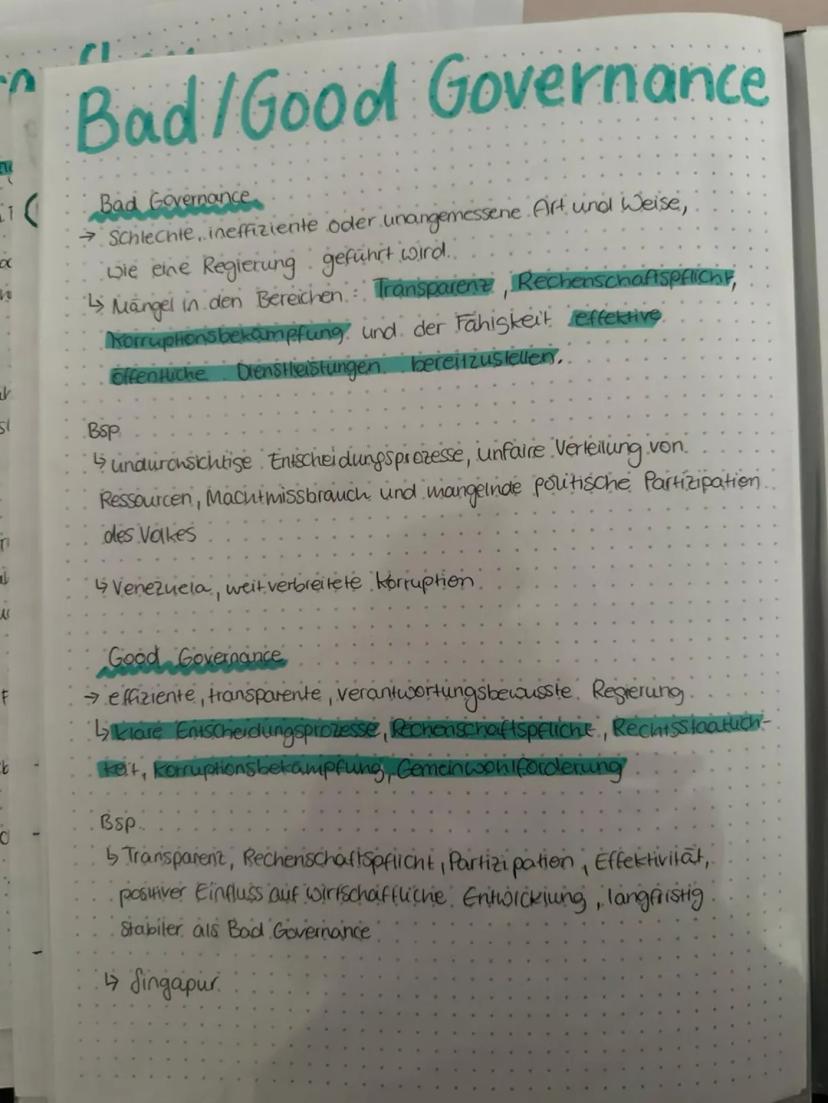 Bad/Good Governance
Bad Governance
→ Schlechte, ineffiziente oder unangemessene Art und Weise,
wie eine Regierung geführt wird.
↳ Mängel in den Bereichen: Transparenz, Rechenschaftspflicht,
Korruptionsbekämpfung und der Fähigkeit effektive
öffentliche Dienstleistungen bereitzustellen.
Bsp
↳ undurchsichtige Entscheidungsprozesse, unfaire Verteilung von
Ressourcen, Machtmissbrauch und mangelnde politische Partizipation
des Volkes
↳ Venezuela, weit verbreitete Korruption
Good Governance
→ effiziente, transparente, verantwortungsbewusste Regierung
↳ klare Entscheidungsprozesse, Rechenschaftspflicht, Rechtsstaatlich-
keit, Korruptionsbekämpfung, Gemeinwohlförderung
Bsp.
↳ Transparenz, Rechenschaftspflicht, Partizipation, Effektivität,
positiver Einfluss auf wirtschaftliche Entwicklung, langfristig
stabiler als Bad Governance
↳ Singapur